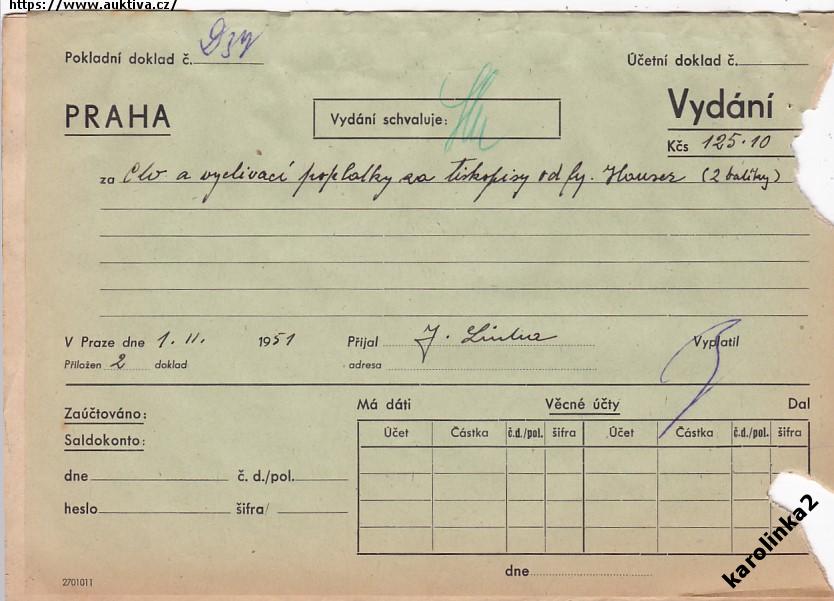 https://www.auktiva.cz/
Pokladní doklad č. D37
Účetní doklad č.
PRAHA
Vydání schvaluje:
Vydání
Kčs 125.10
za Clo a vyclívací poplatky za tiskopisy od fy. Hauser (2 balíky)
V Praze dne 1. II. 1951
Přijal J.
Vyplatil
Přiložen 2 doklad
adresa
Zaúčtováno:
Má dáti Věcné účty Dal
Saldokonto:
Účet Částka č.d./pol. šifra Účet Částka č.d./pol. šifra
dne č. d./pol.
heslo šifra/
dne
2701011
karolinka2